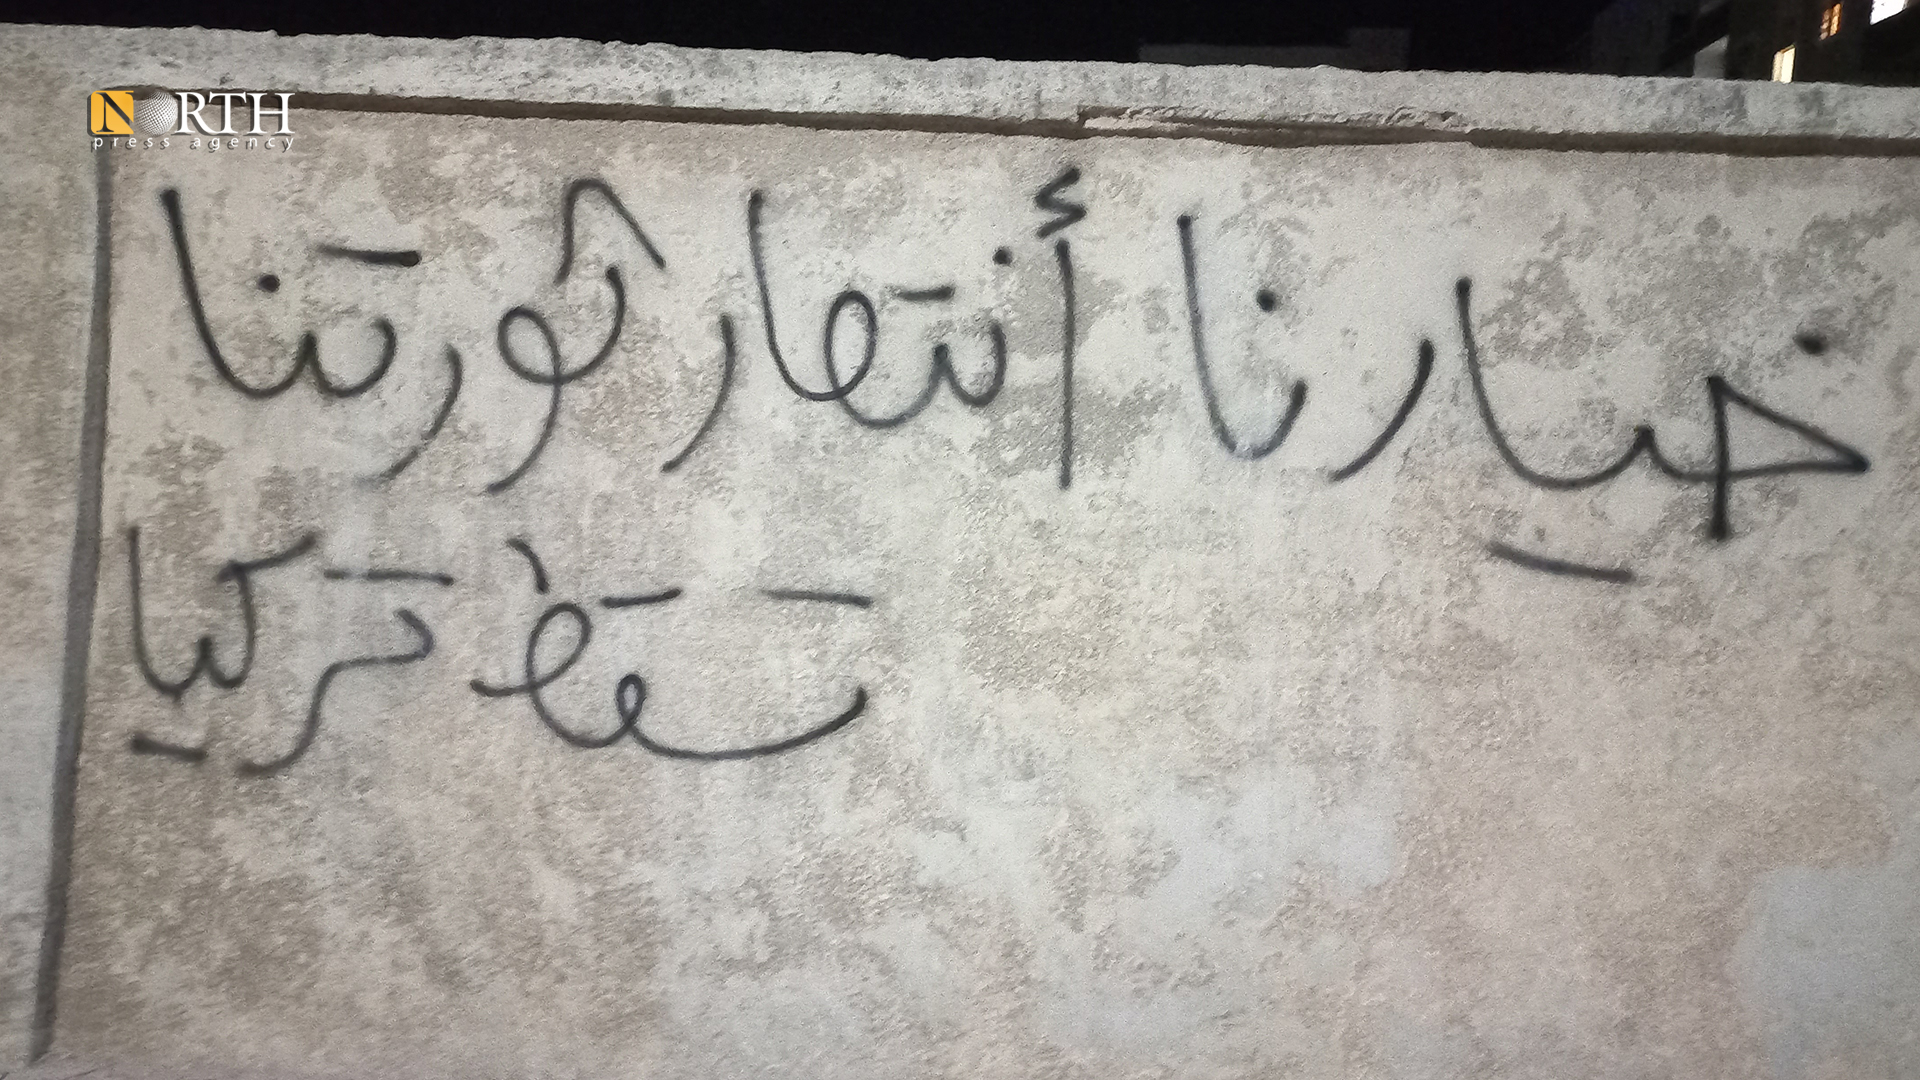 NORTH
press agency
خيارنا أنتصار ثورتنا
تسقط تركيا